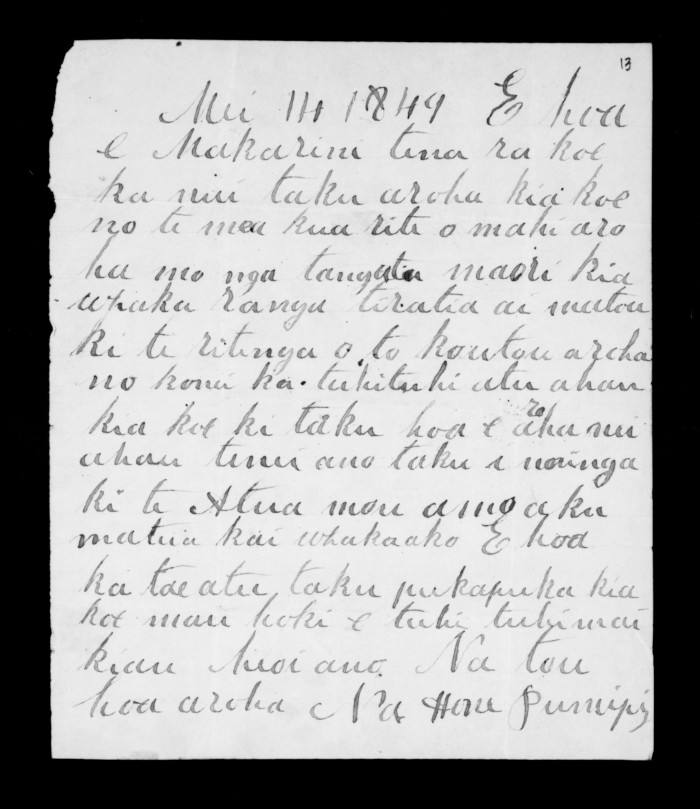 13
Mei 14 1849 E hoa
e Makarini tena ra koe
ka nui taku aroha kia koe
no te mea kua rite o mahi aro
ha mo nga tangata maori kia
whaka ranga tiratia ai matou
ki te ritenga o to koutou aroha
no konei ka tuhituhi atu ahau
kia koe ki taku hoa e aroha nui
ahau tenei ano taku i noinga
ki te Atua mou a mo aku
matua kai whakaako E hoa
ka tae atu taku pukapuka kia
koe mau hoki e tuhi tuhi mai
kiau heoi ano Na tou
hoa aroha Na Hone